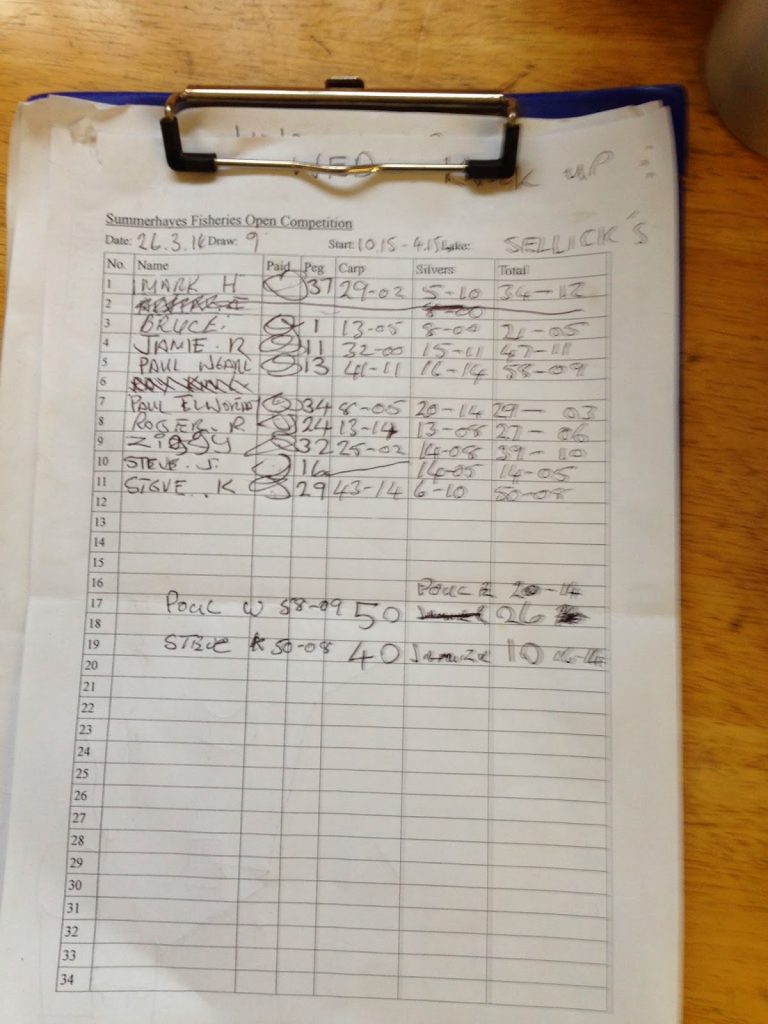 WED KNOCK UP
Summerhayes Fisheries Open Competition
Date: 26.3.14 Draw: 9 Start: 10.15 - 4.15 Lake: SELLICK'S
No. Name Paid Peg Carp Silvers Total
1 MARK H 37 29-02 5-10 34-12
2
3 BRUCE. 1 13-05 8-00 21-05
4 JAMIE. R 11 32-00 15-11 47-11
5 PAUL 13 41-11 16-14 58-09
6
7 PAUL 34 8-05 20-14 29-03
8 ROGER. R 24 13-14 13-08 27-06
9 ZIGGY 32 25-02 14-08 39-10
10 STEVE. S. 16 14-05 14-05
11 STEVE. K 29 43-14 6-10 50-08
12
13
14
15
16 PAUL E 20-14
17 PAUL W 58-09 50 26
18
19 STEVE K 50-08 40 10
20
21
22
23
24
25
26
27
28
29
30
31
32
33
34